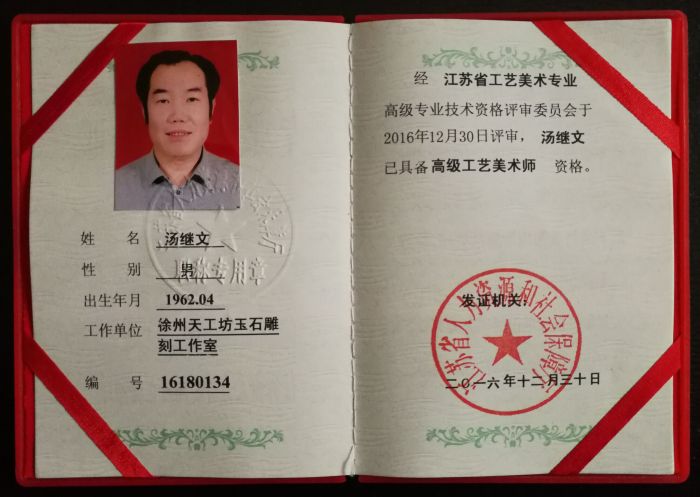 姓 名 汤继文
性 别 男
出生年月 1962.04
工作单位 徐州天工坊玉石雕
刻工作室
编 号 16180134
职称专用章
经 江苏省工艺美术专业
高级专业技术资格评审委员会于
2016年12月30日评审，汤继文
已具备 高级工艺美术师 资格。
发证机关：
江苏省人力资源和社会保障厅
二〇一六年十二月三十日